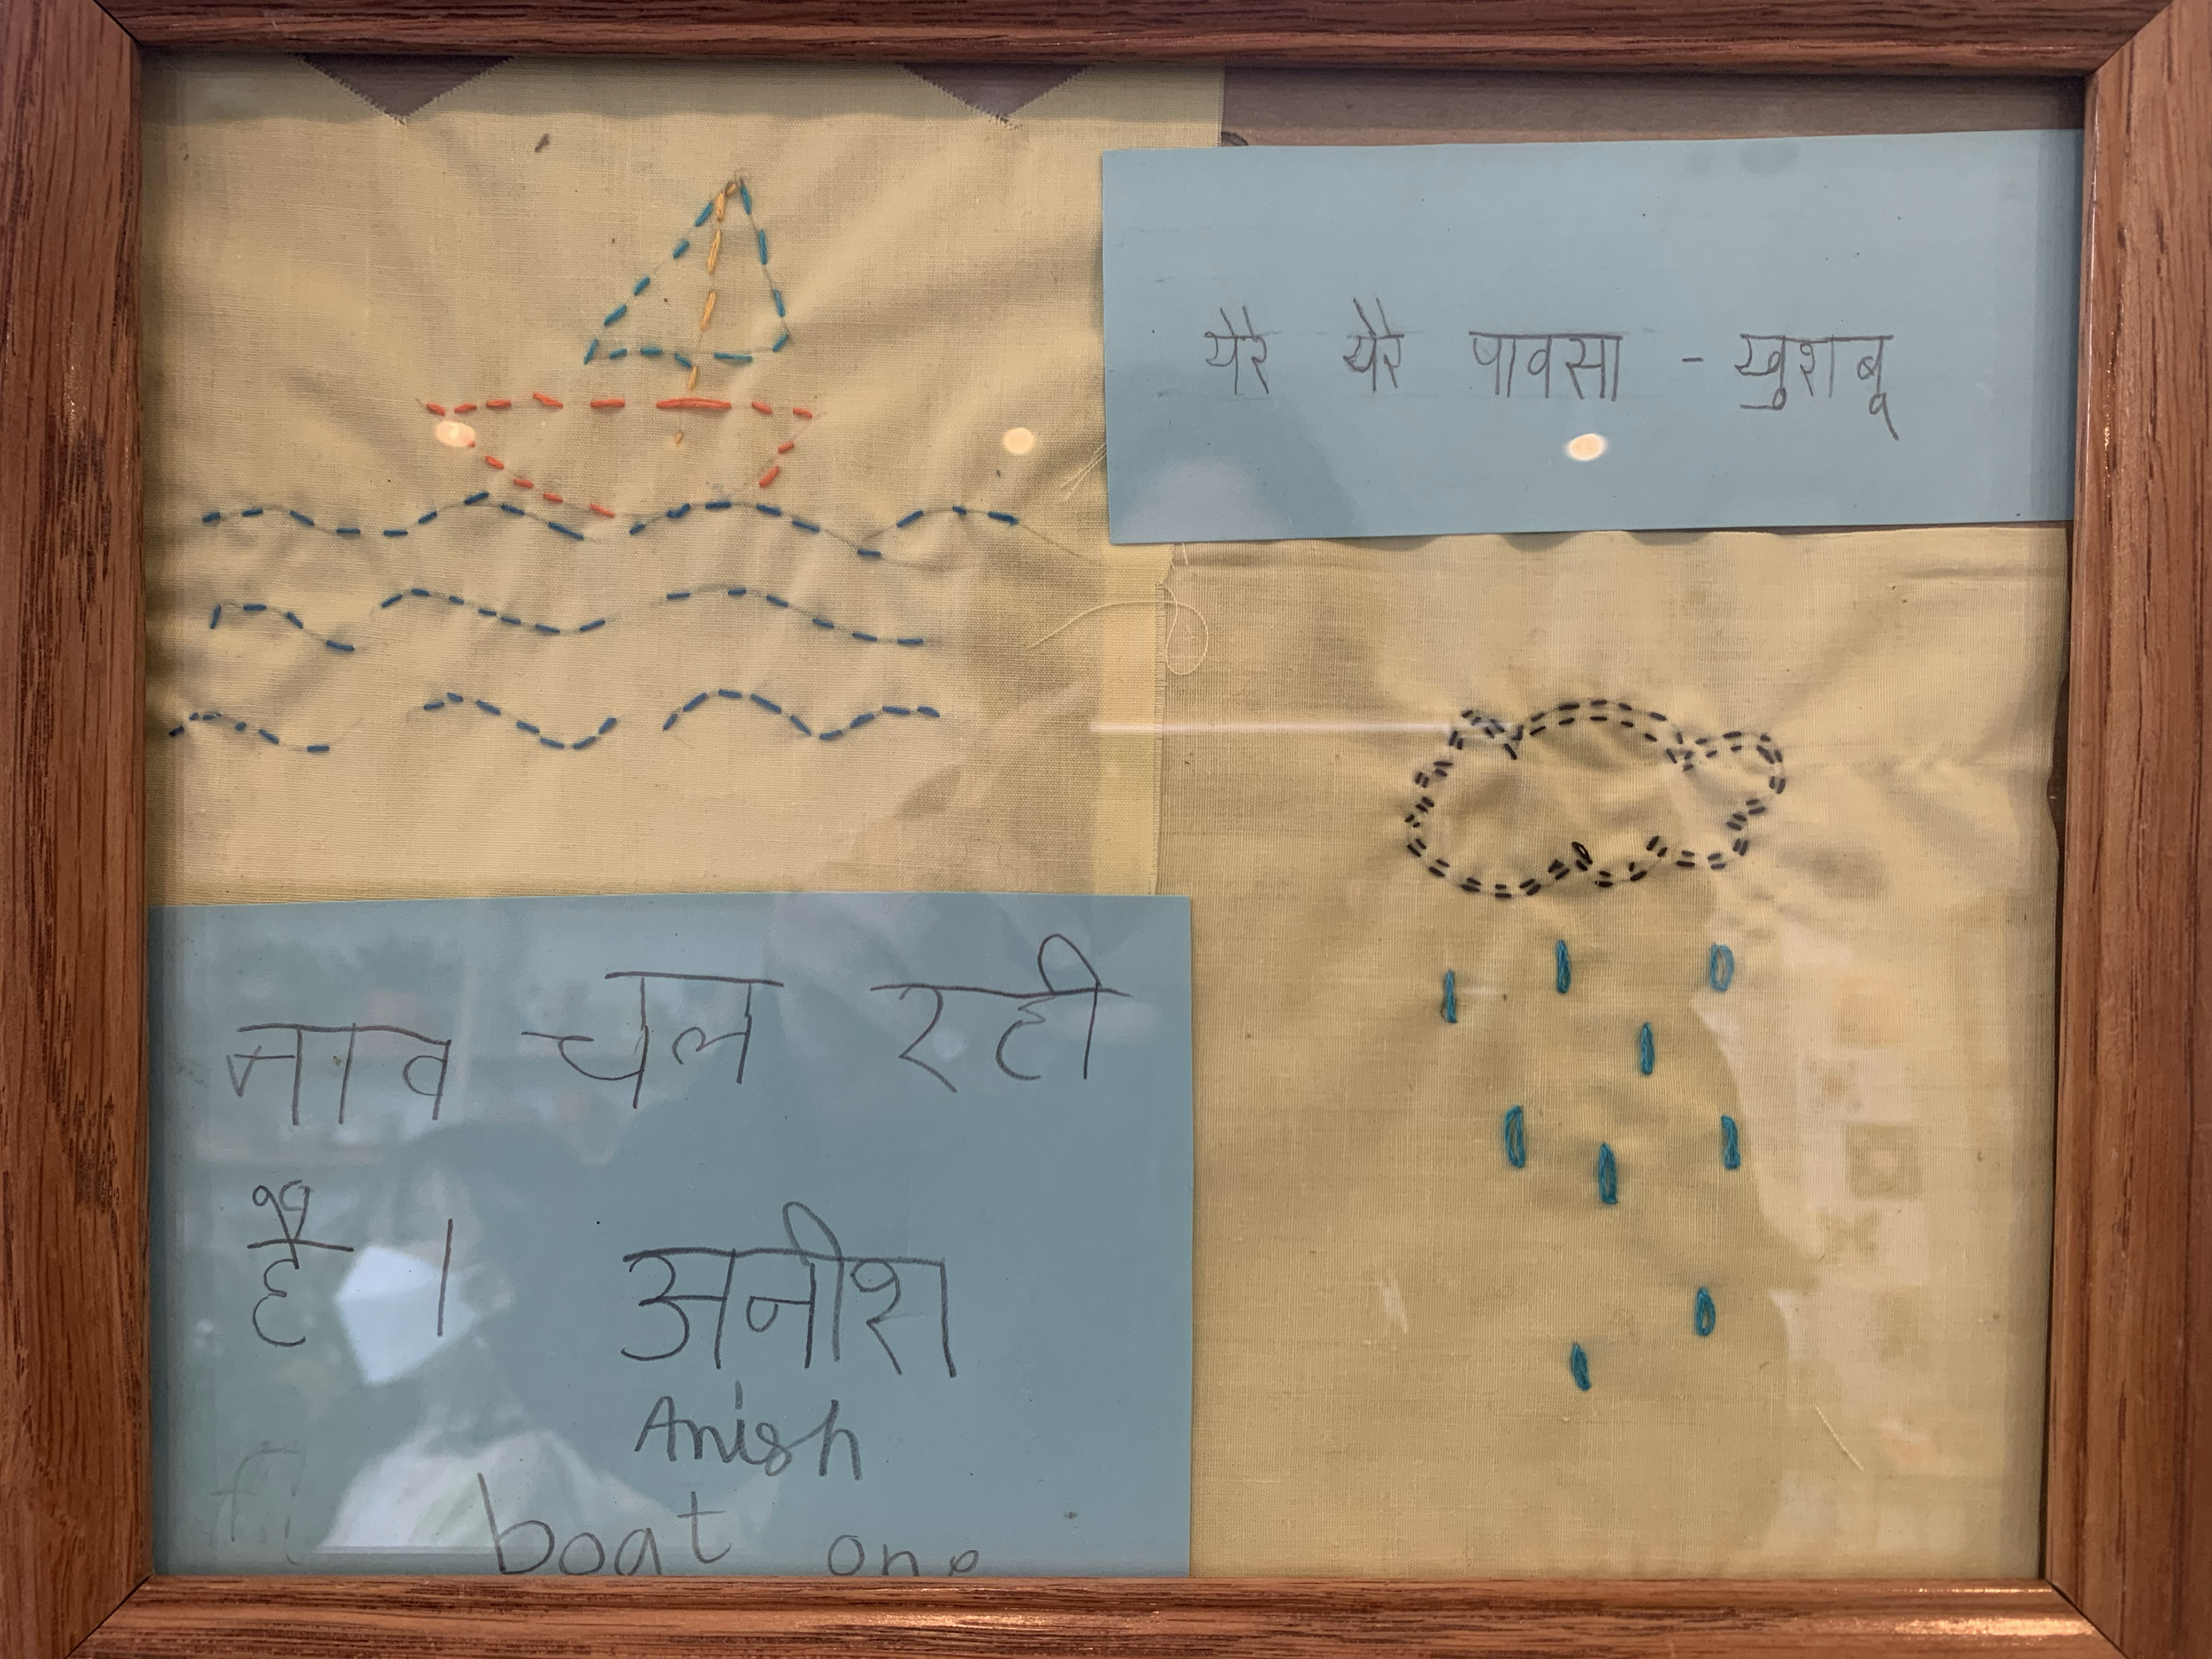 येरे येरे पावसा - खुशबू
नाव चल रही
है ।
अनीश
Anish
boat one